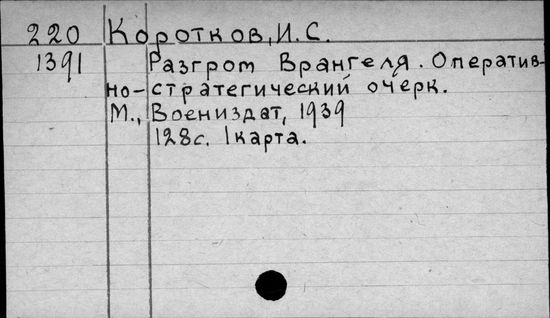 220 Коротков, И. С.
1391 Разгром Врангеля. Оператив-
но-стратегический очерк.
М., Воениздат, 1939
128с. 1 карта.